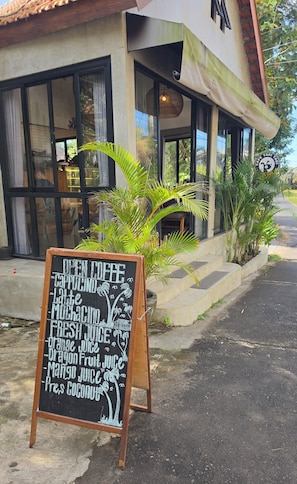 OPEN COFFEE
-CAPPUCINO
-Latte
-Mochacino
FRESH JUICE
-Orange Juice
-Dragon Fruit Juice
-Mango Juice
-Fres Coconut